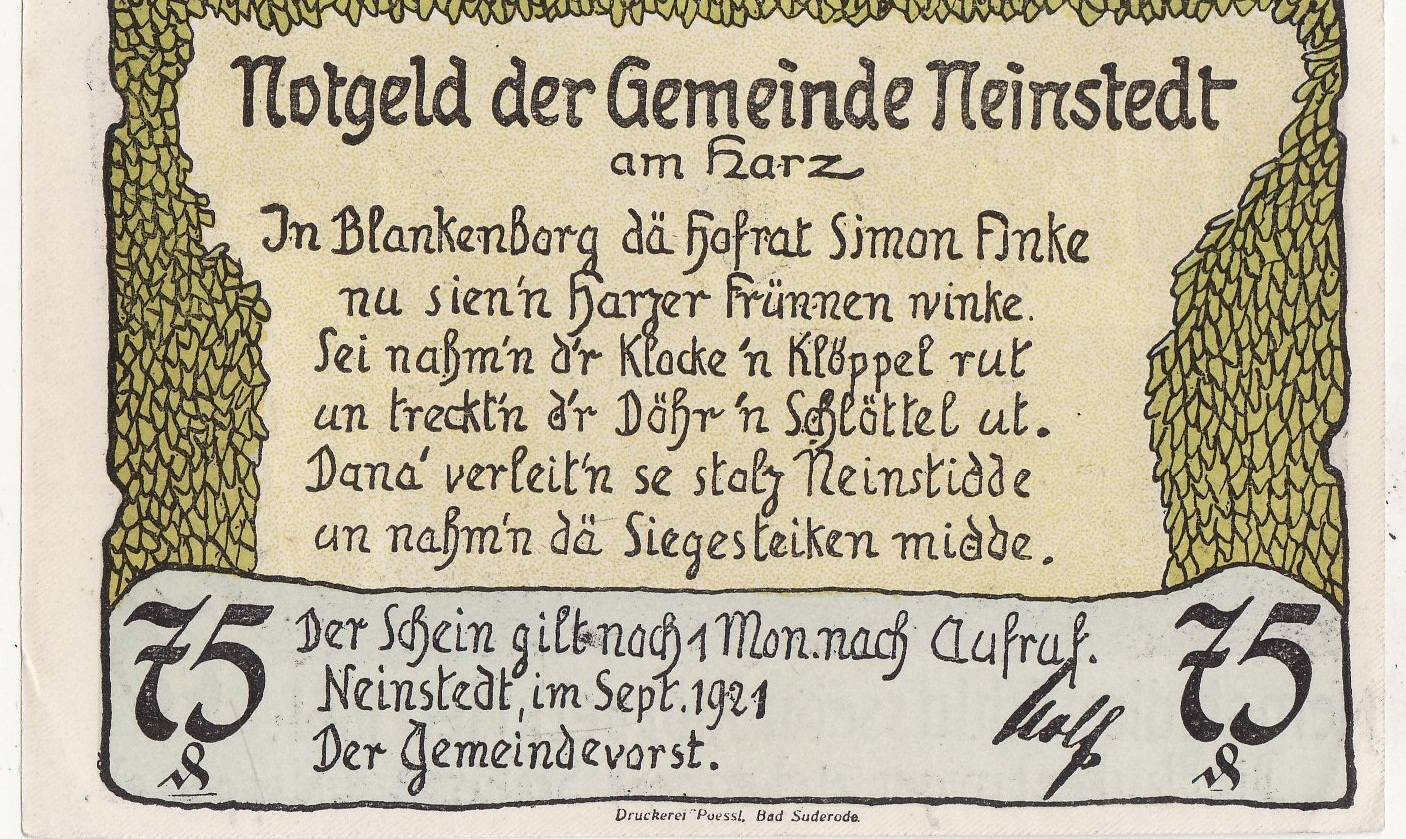 Notgeld der Gemeinde Neinstedt
am Harz
In Blankenborg dä Hofrat Simon Finke
nu sien'n Harzer Frünnen winke.
Sei nahm'n d'r Klocke 'n Klöppel rut
un treckt'n d'r Döhr 'n Schlöttel ut.
Dana' verleit'n se stolz Neinstidde
un nahm'n dä Siegesteiken midde.
75 Der Schein gilt noch 1 Mon. nach Aufruf. 75
Neinstedt, im Sept. 1921
Der Gemeindevorst.
₰ ₰
Druckerei Poessl, Bad Suderode.